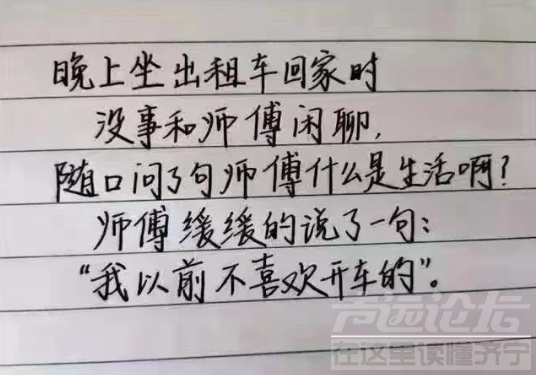 晚上坐出租车回家时
没事和师傅闲聊,
随口问了句师傅什么是生活啊?
师傅缓缓的说了一句:
“我以前不喜欢开车的”。
声远论坛
在这里读懂济宁